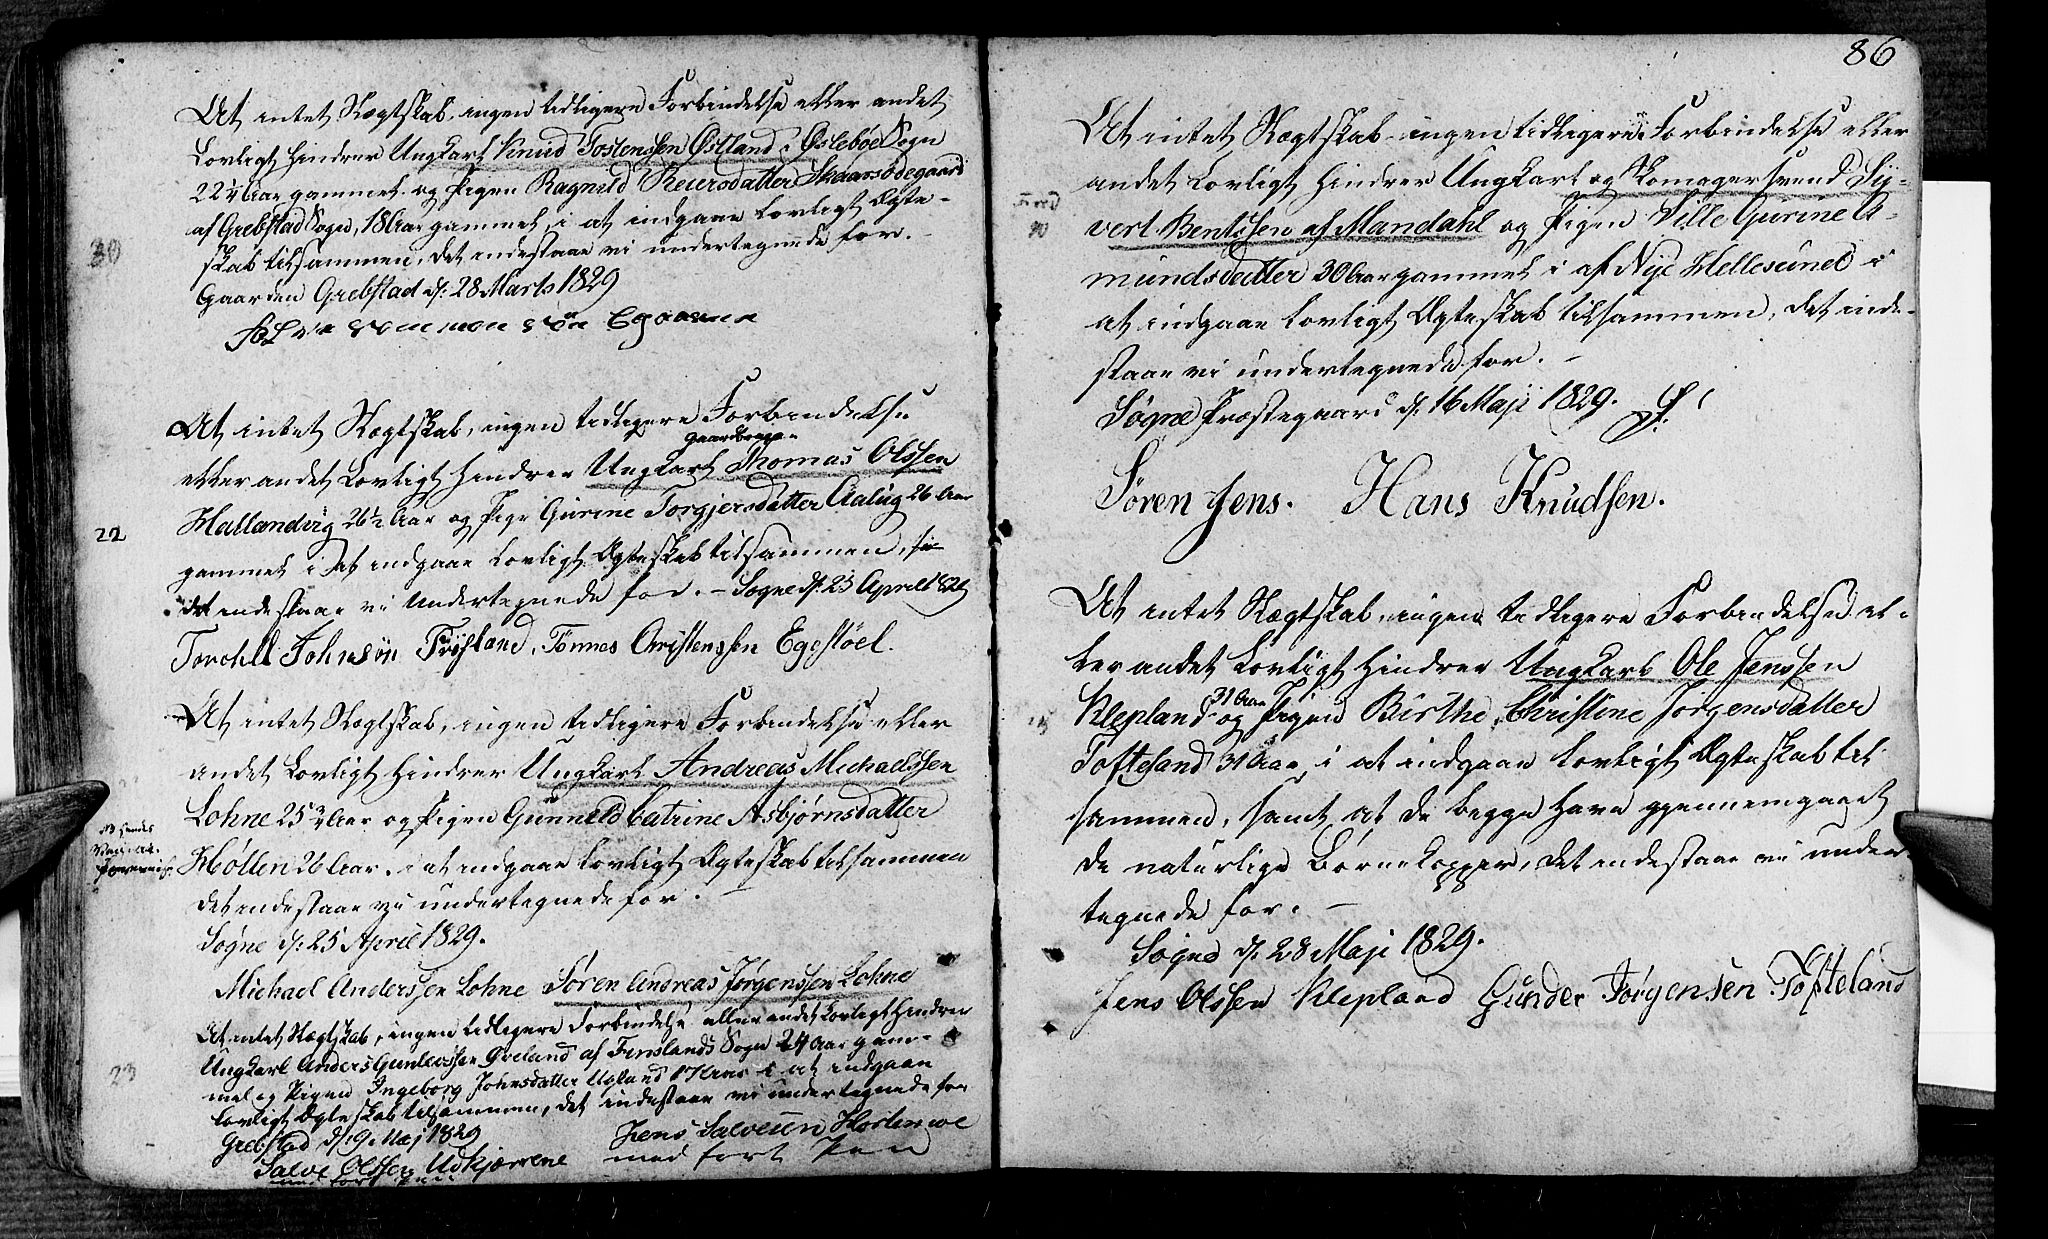 At intet Slægtskab, ingen tidligere Forbindelse eller andet
Lovligt hindrer Ungkarl Knud Tostenssen Østland i Øslebøe Sogn
22 1/4 Aar gammel og Pigen Ragnild Reiersdatter
af Grebstad Sogn, 18 Aar gammel, i at indgaae Lovligt Ægte-
30
skab tilsammen, det indestaae vi undertegnede for.
Gaarden Grebstad d: 28 Marts 1829
At intet Slægtskab, ingen tidligere Forbindelse
Gaardbruger
eller andet Lovligt hindrer Ungkarl Thomas Olssen
Hallandvig 26 1/2 Aar og Pige Gurine Torgjersdatter Aalug 26 Aar
22
gammel i at indgaae Lovligt Ægteskab tilsammen,
det indestaae vi Undertegnede for. - Søgne d: 25 April 1829
Torchel Johnsøn Trysland, Tønnes Christenssen Egestøel.
At intet Slægtskab, ingen tidligere Forbindelse eller
andet Lovligt hindrer Ungkarl Andreas Michaelssen
Lohne 25 3/4 Aar og Pigen Gunneld Catrine Asbjørnsdatter
Høllen 26 Aar. i at indgaae Lovligt Ægteskab tilsammen
det indestaae vi undertegnede for.
Søgne d: 25 April 1829.
Michael Anderssen Lohne Søren Andreas Jørgenssen Lohne
At intet Slægtskab, ingen tidligere Forbindelse eller andet Lovligt hindrer
Ungkarl Anders Gunleussen Øreland af Finslands Sogn 24 Aar gam-
23
mel og Pigen Ingeborg Johnsdatter Ugland 17 Aar i at indgaae
Lovligt Ægteskab tilsammen, det indestaae vi undertegnede for
Grebstad d: 9 Maj 1829
Jens Salvesen
Salve Olssen Udkjærrene med fort Pen
86
At intet Slægtskab ingen tidligere Forbindelse eller
andet Lovligt hindrer Ungkarl og Skomagersvend Sig-
vert Bentssen af Mandahl og Pigen Ville Gurine A-
mundsdatter 30 Aar gammel i af Nye Hellesund i
at indgaae Lovligt Ægteskab tilsammen, det inde-
staae vi undertegnede for. -
Søgne Præstegaard d: 16 Maji 1829.
Søren Jens. Hans Knudsen.
At intet Slægtskab, ingen tidligere Forbindelse el-
ler andet Lovligt hindrer Ungkarl Ole Jenssen
31 Aar
Klepland og Pigen Birthe Christine Jørgensdatter
Tofteland 31 Aar, i at indgaae Lovligt Ægteskab til
sammen, samt at de begge have gjennemgaaet
de naturlige Børnekopper, det indestaae vi under-
tegnede for. -
Søgne d: 28 Maji 1829.
Jens Olssen Klepland Gunder Jørgensen Tofteland